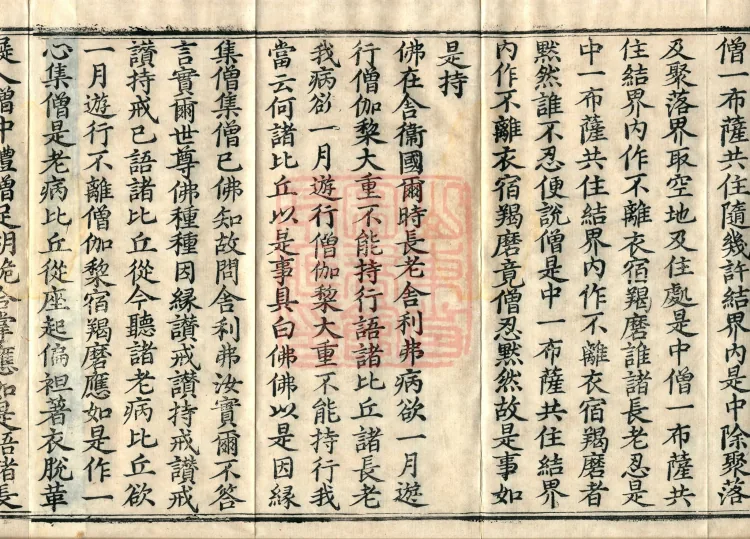 僧一布薩共住隨幾許結界內是中除聚落
及聚落界取空地及住處是中僧一布薩共
住結界內作不離衣宿羯磨誰諸長老忍是
中一布薩共住結界內作不離衣宿羯磨者
黙然誰不忍便說僧是中一布薩共住結界
內作不離衣宿羯磨竟僧忍黙然故是事如
是持
佛在舍衞國爾時長老舍利弗病欲一月遊
行僧伽黎大重不能持行語諸比丘諸長老
我病欲一月遊行僧伽黎大重不能持行我
當云何諸比丘以是事具白佛佛以是因縁
集僧集僧已佛知故問舍利弗汝實爾不荅
言實爾世尊佛種種因縁讃戒讃持戒讃戒
讃持戒已語諸比丘從今聽諸老病比丘欲
一月遊行不離僧伽黎宿羯磨應如是作一
心集僧是老病比丘從座起偏袒著衣脫革
屣入僧中禮僧足胡跪合掌應如是語諸長